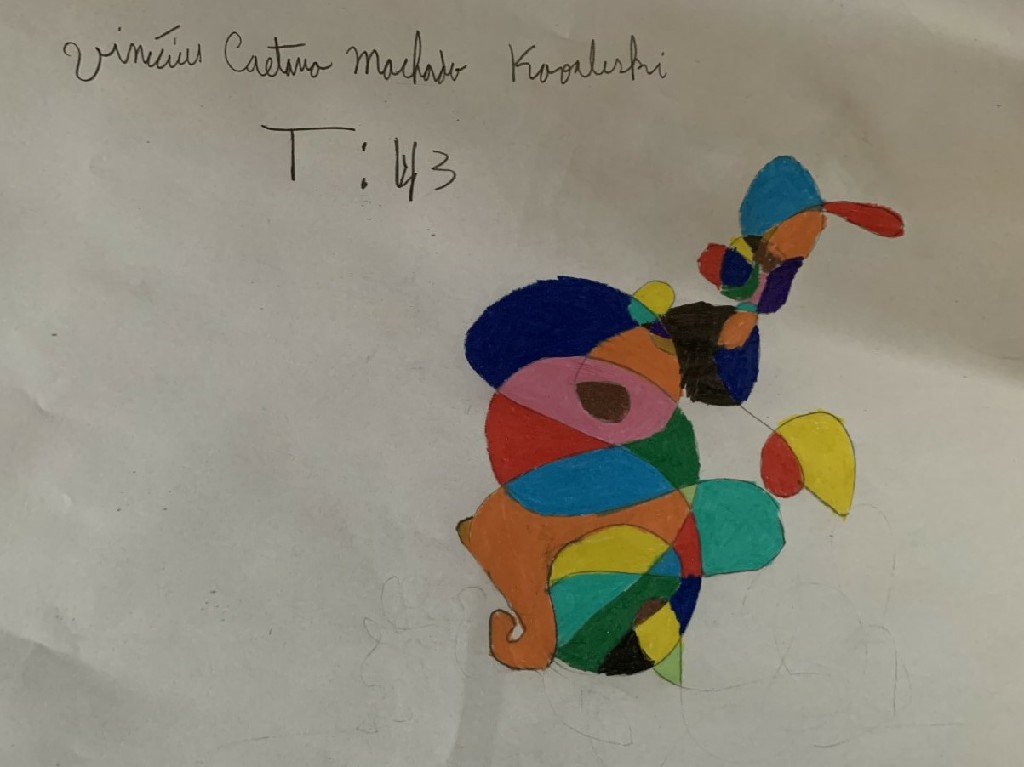 Vinícius Caetano Machado Kovaleski
T: 43